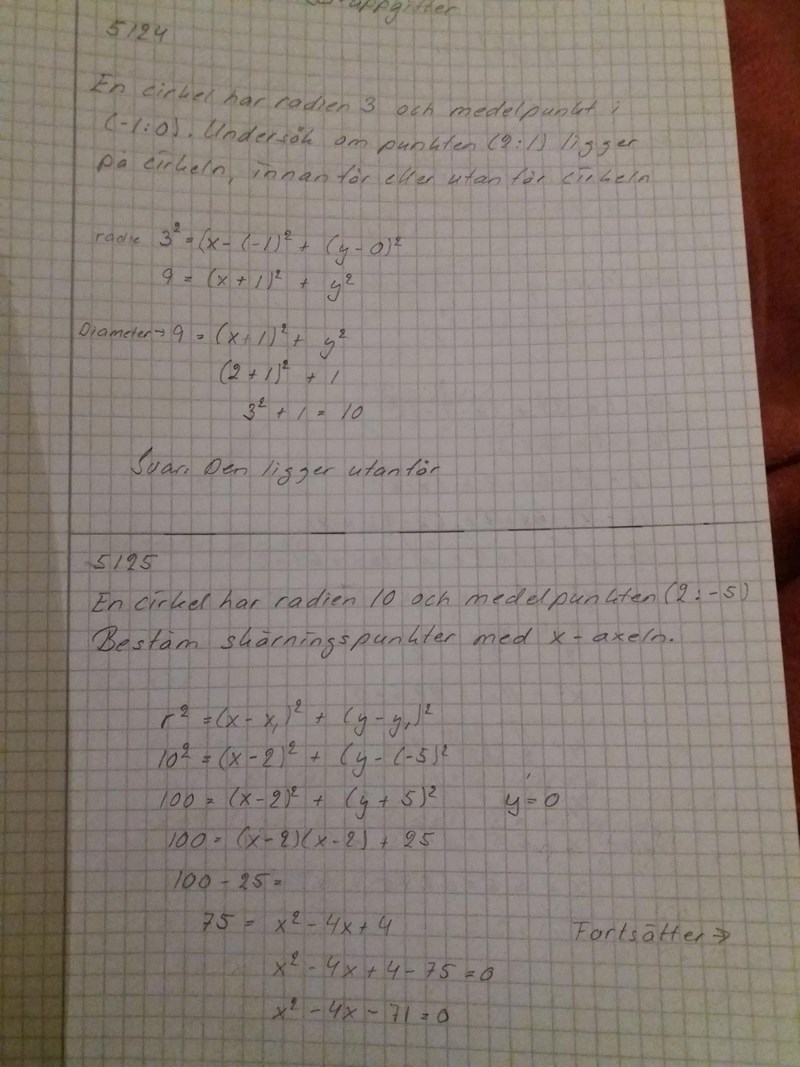 uppgifter
5124
En cirkel har radien 3 och medelpunkt i
(-1:0). Undersök om punkten (2:1) ligger
på cirkeln, innanför eller utanför cirkeln
radie 3² = (x - (-1)² + (y - 0)²
9 = (x + 1)² + y²
Diameter → 9 = (x+1)² + y²
(2 + 1)² + 1
3² + 1 = 10
Svar: Den ligger utanför
5125
En cirkel har radien 10 och medelpunkten (2:-5)
Bestäm skärningspunkter med x-axeln.
r² = (x - x₁)² + (y - y₁)²
10² = (x - 2)² + (y - (-5)²
100 = (x-2)² + (y + 5)² y = 0
100 = (x-2)(x-2) + 25
100 - 25 =
75 = x² - 4x + 4
Fortsätter →
x² - 4x + 4 - 75 = 0
x² - 4x - 71 = 0